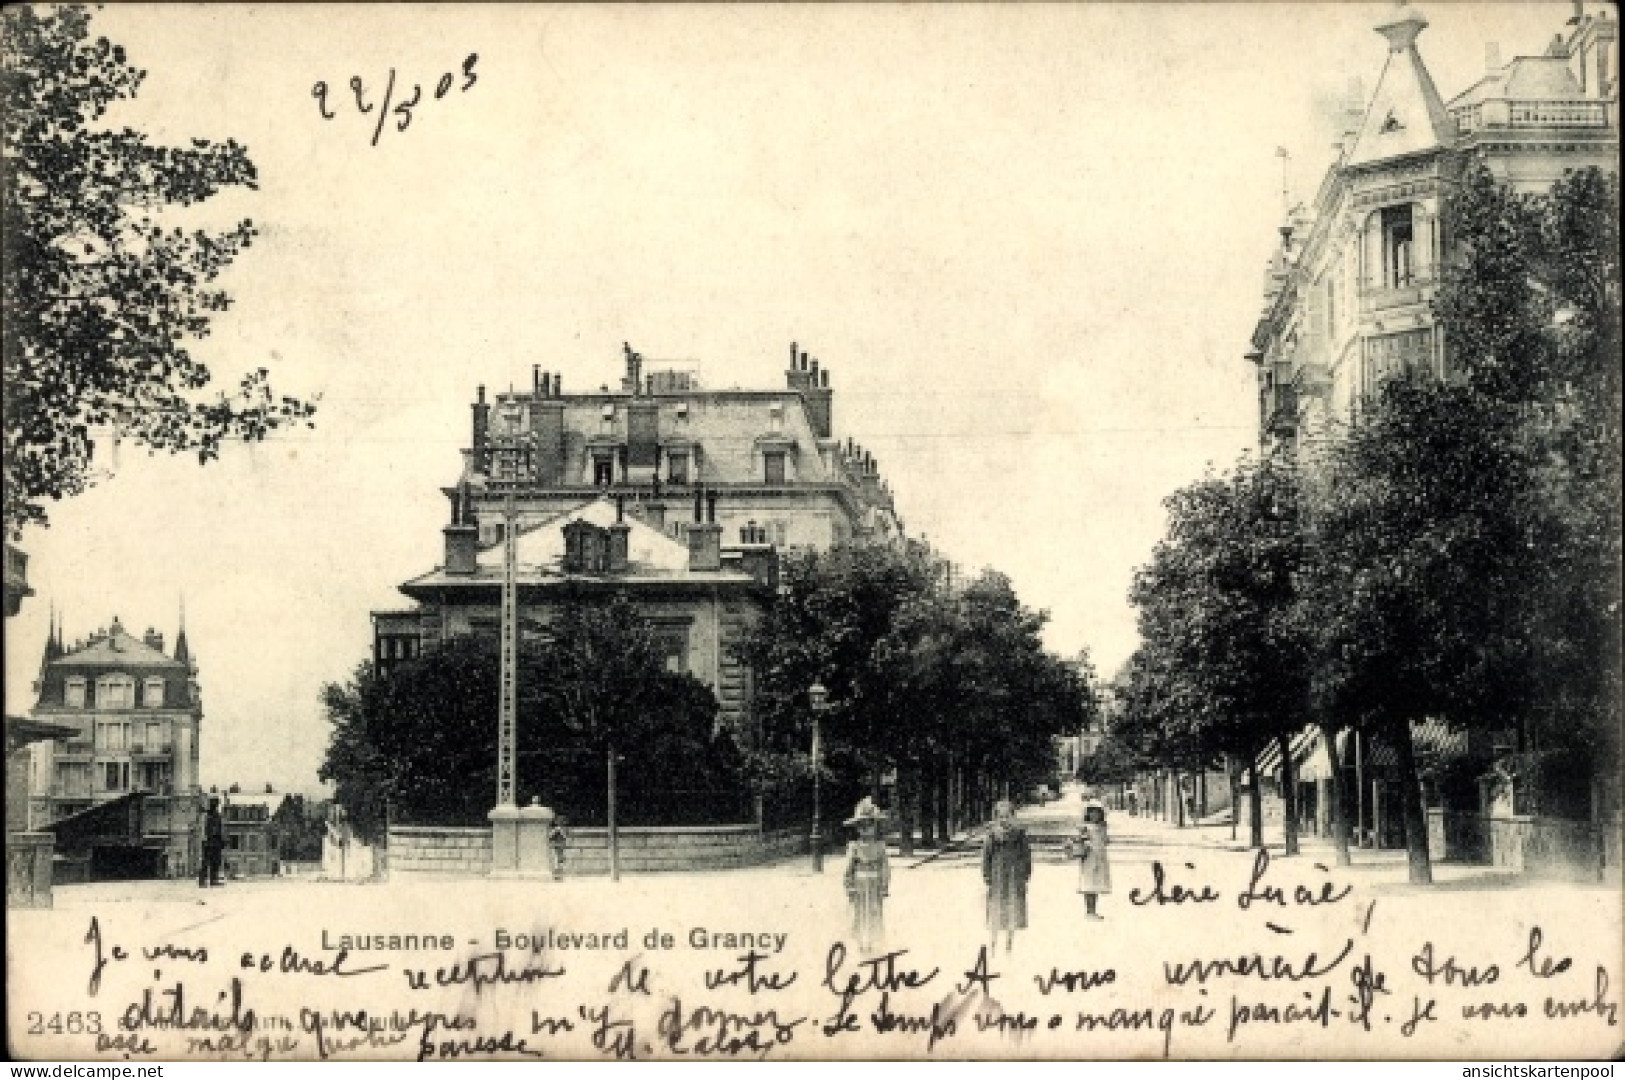 22/5 03
chère Lucie,
Lausanne - Boulevard de Grancy
Je vous accuse reception de votre lettre et vous remercie de tous les
2463 détails que vous m'y donnez. Le temps vous a manqué parait-il. Je vous embr
asse malgré votre paresse
delcampe.net
ansichtskartenpool